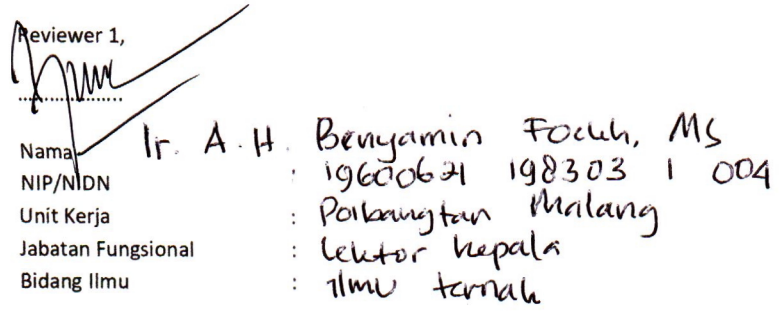 Reviewer 1,
....................
Nama Ir. A.H. Benyamin MS
NIP/NIDN : 19600621 198303 1 004
Unit Kerja : Polbangtan Malang
Jabatan Fungsional : Lektor kepala
Bidang Ilmu : Ilmu ternak